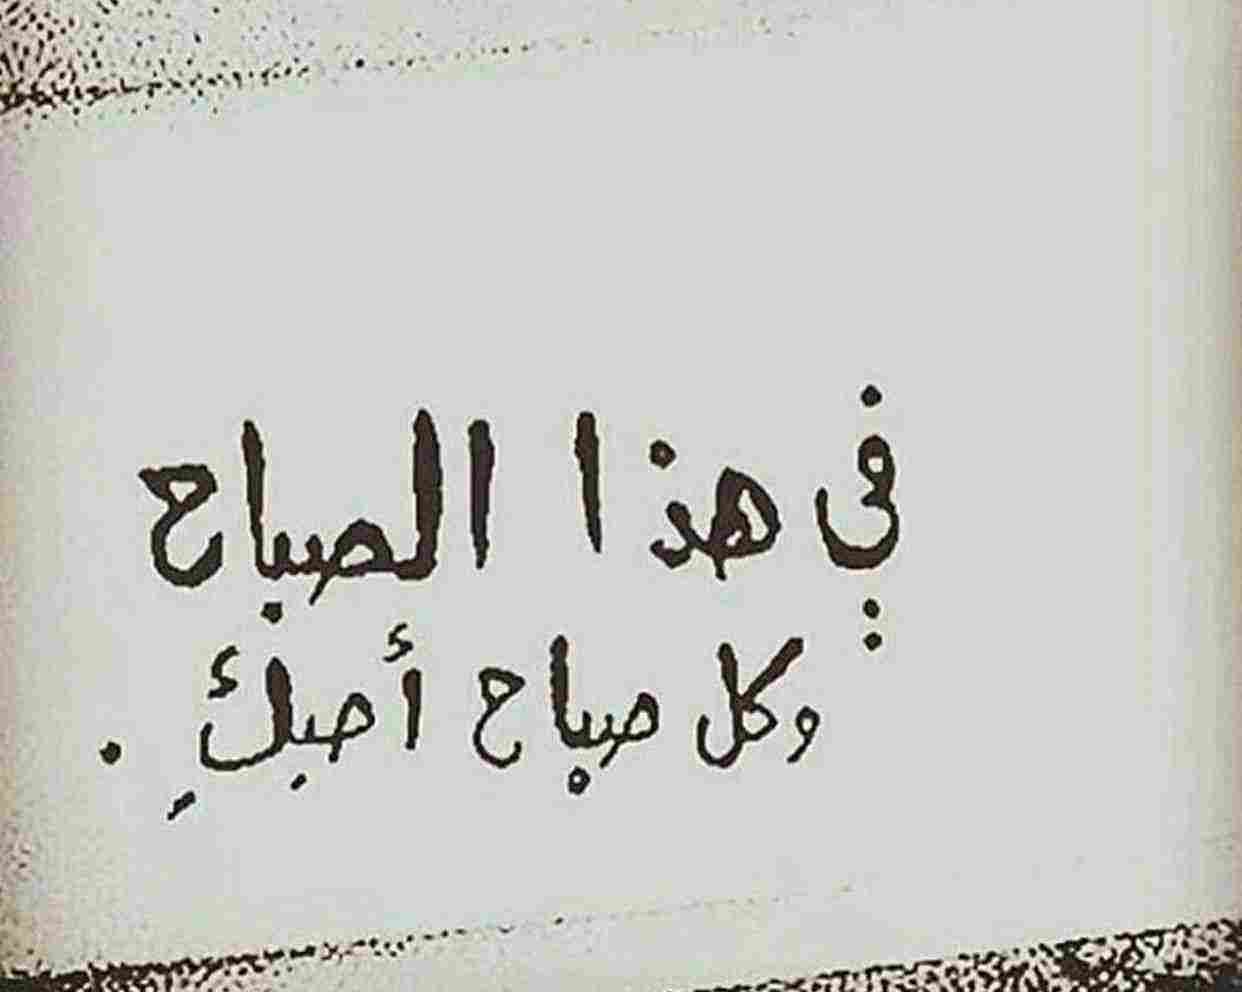 في هذا الصباح
وكل صباح أحبكِ .